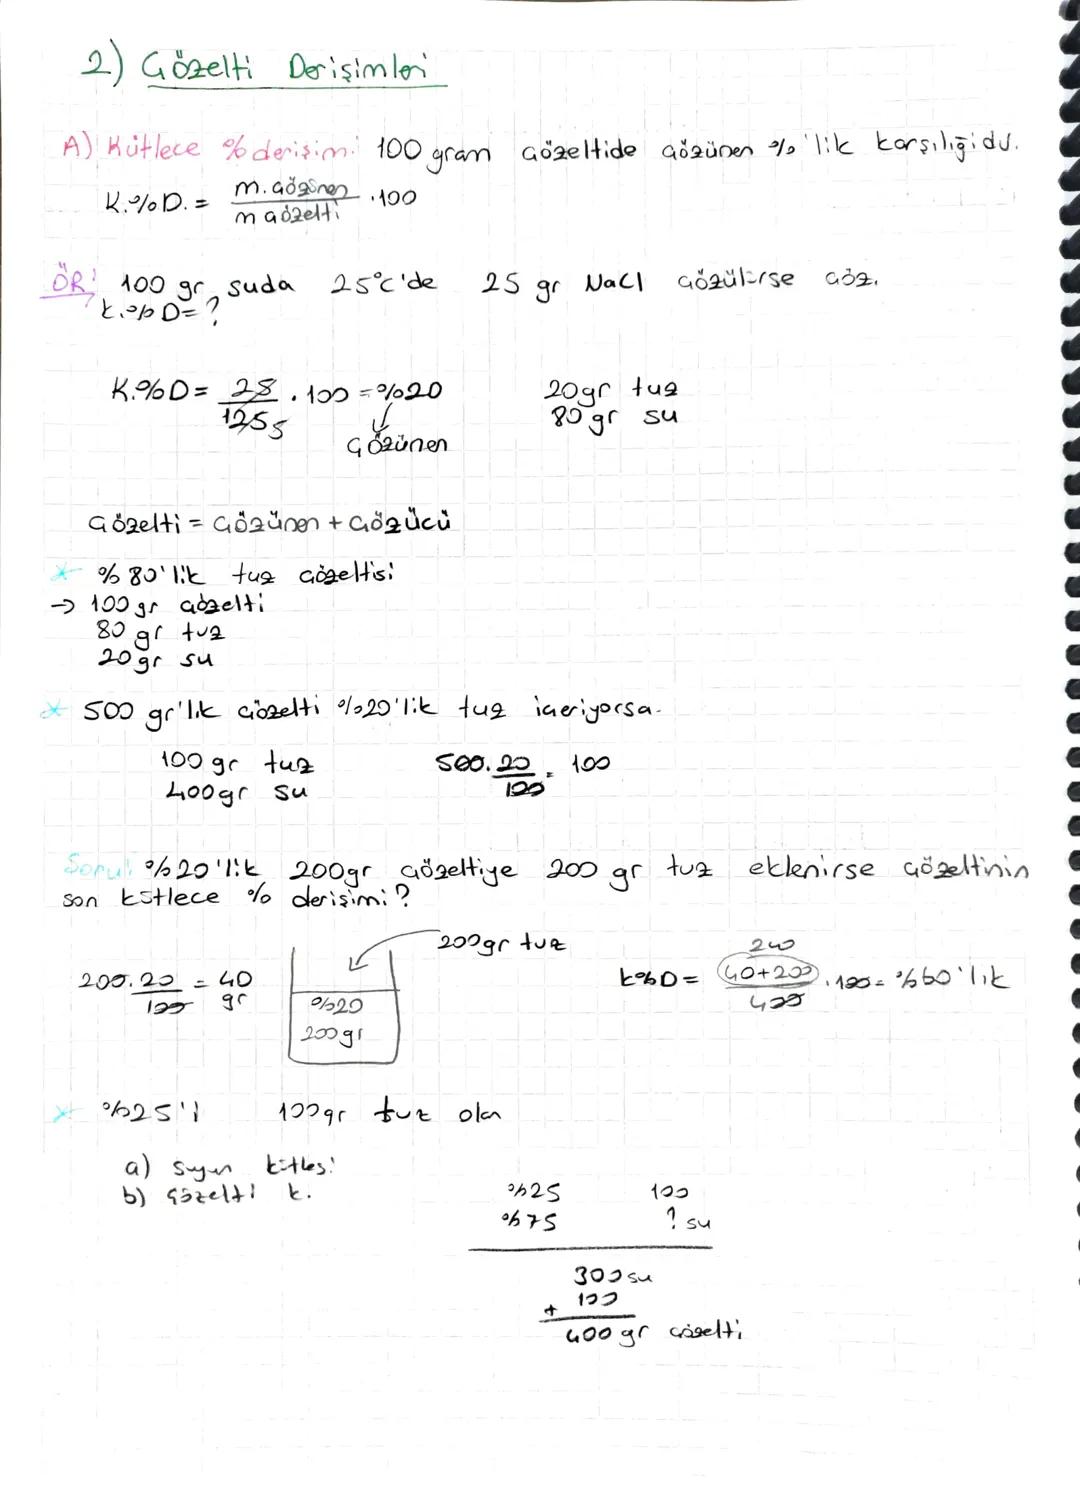 2) Çözelti Derişimleri
A) Kütlece % derişim: 100 gram çözeltide çözünen %'lik karşılığıdır.
K.%D. = m.çözünen / m çözelti .100
ÖR: 100 gr suda 25°C'de 25 gr NaCl çözülürse çöz.
k.%D=?
K.%D = 25/125 . 100 = %20
5
20gr tuz
80 gr su
Çözünen
Çözelti = Çözünen + Çözücü
* %80'lik tuz çözeltisi
→ 100 gr çözelti
80 gr tuz
20 gr su
* 500 gr'lık çözelti %20'lik tuz içeriyorsa.
100 gr tuz
400 gr su
500.20/100 = 100
Soru: %20'lik 200gr çözeltiye 200 gr tuz eklenirse çözeltinin
son kütlece % derişimi?
200gr tuz
200.20/100 = 40 gr
%20
200gr
240
k%D = 40+200/400 .100 = %60'lık
* %25'i 100gr tuz olan
a) Suyun kütlesi
b) çözelti k.
%25 100
%75 ? su
300 su
+ 100
400 gr çözelti